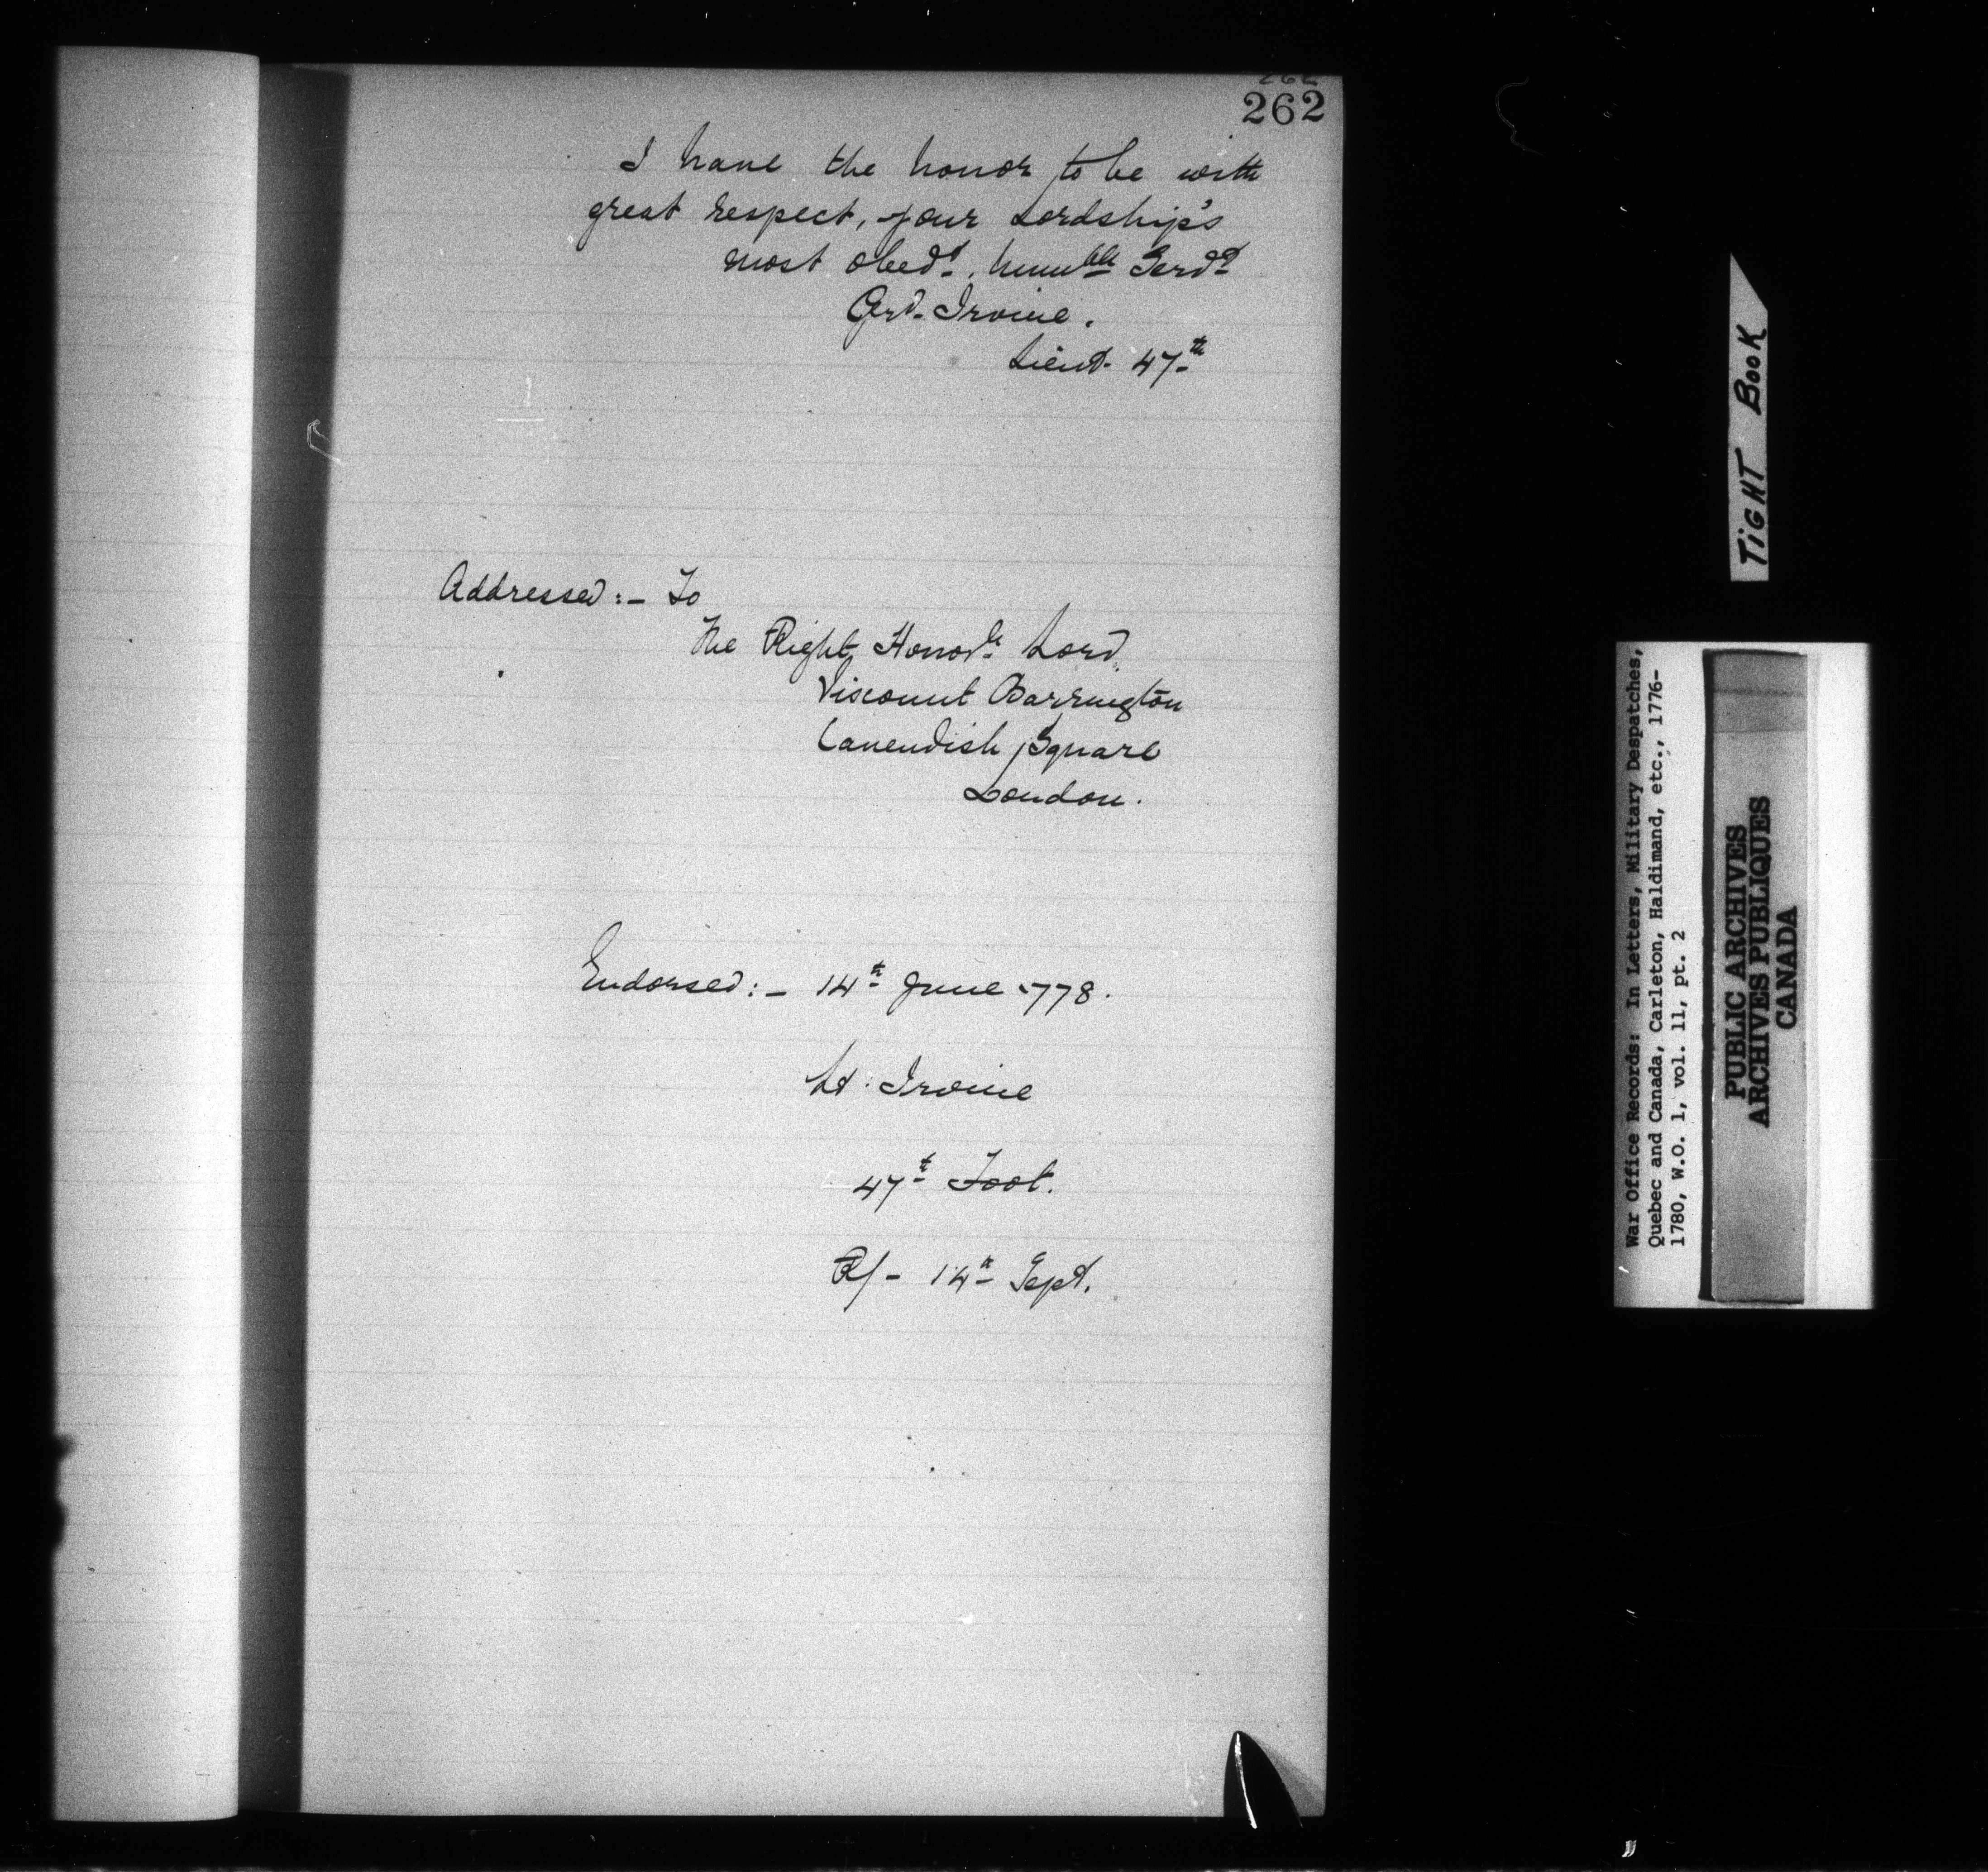 262
262
I have the honor to be with
great respect, your Lordship's
most obedt. humble Servt
Grd. Irvine.
Lieut. 47th
Addressed:- To
The Right Honorle Lord
Viscount Barrington
Cavendish Square
London.
Endorsed:- 14th June 1778.
Lt. Irvine
47th Foot.
R/- 14th Sept.
TIGHT BOOK
War Office Records: In Letters, Military Despatches,
Quebec and Canada, Carleton, Haldimand, etc., 1776-
1780, W.O. 1, vol. 11, pt. 2
PUBLIC ARCHIVES
ARCHIVES PUBLIQUES
CANADA